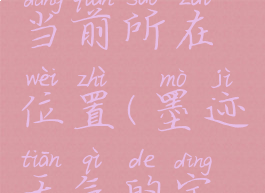 dāng qián suǒ zài
当前所在
wèi zhì mò jì
位置(墨迹
tiān qì de dìng
天气的定